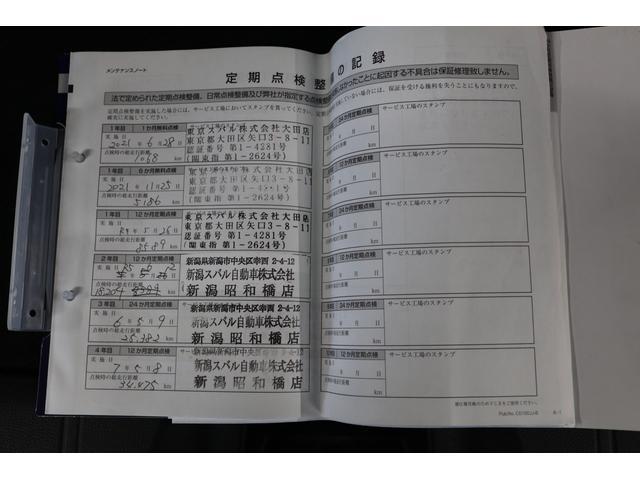 メンテナンスノート
定期点検整
備の記録
法で定められた定期点検整備、日常点検整備及び弊社が指定する点検整
かったことに起因する不具合は保証修理致しません。
定期点検整備を実施した場合には、サービス工場においてスタンプを貰ってください。
確実に実施してください。
していない場合には、保証を受ける権利を失うことにもなりますので、
1年目 1か月無料点検
サービス工場のスタンプ
実施日 2021年6月28日
点検時の総走行距離 1068 km
東京スバル株式会社大田店
東京都大田区矢口3-8-11
認証番号 第1-4281号
(関東指 第1-2624号)
1年目 6か月無料点検
実施日 2021年11月25日
点検時の総走行距離 5186 km
東京スバル株式会社大田店
東京都大田区矢口3-8-11
認証番号 第1-4281号
(関東指 第1-2624号)
1年目 12か月定期点検
実施日 R4年5月26日
点検時の総走行距離 8589 km
東京スバル株式会社大田店
東京都大田区矢口3-8-11
認証番号 第1-4281号
(関東指 第1-2624号)
2年目 12か月定期点検
実施日
18204 km
新潟県新潟市中央区幸西 2-4-12
新潟スバル自動車株式会社
新潟昭和橋店
3年目 24か月定期点検
実施日 6年5月9日
点検時の総走行距離 25,382 km
新潟県新潟市中央区幸西 2-4-12
新潟スバル自動車株式会社
新潟昭和橋店
4年目 12か月定期点検
実施日 7年5月8日
点検時の総走行距離 34,475 km
新潟県新潟市中央区幸西 2-4-12
新潟スバル自動車株式会社
新潟昭和橋店
24か月定期点検
サービス工場のスタンプ
年 月 日
km
12か月定期点検
サービス工場のスタンプ
年 月 日
km
24か月定期点検
サービス工場のスタンプ
年 月 日
km
12か月定期点検
サービス工場のスタンプ
年 月 日
km
24か月定期点検
サービス工場のスタンプ
年 月 日
km
12か月定期点検
サービス工場のスタンプ
年 月 日
km